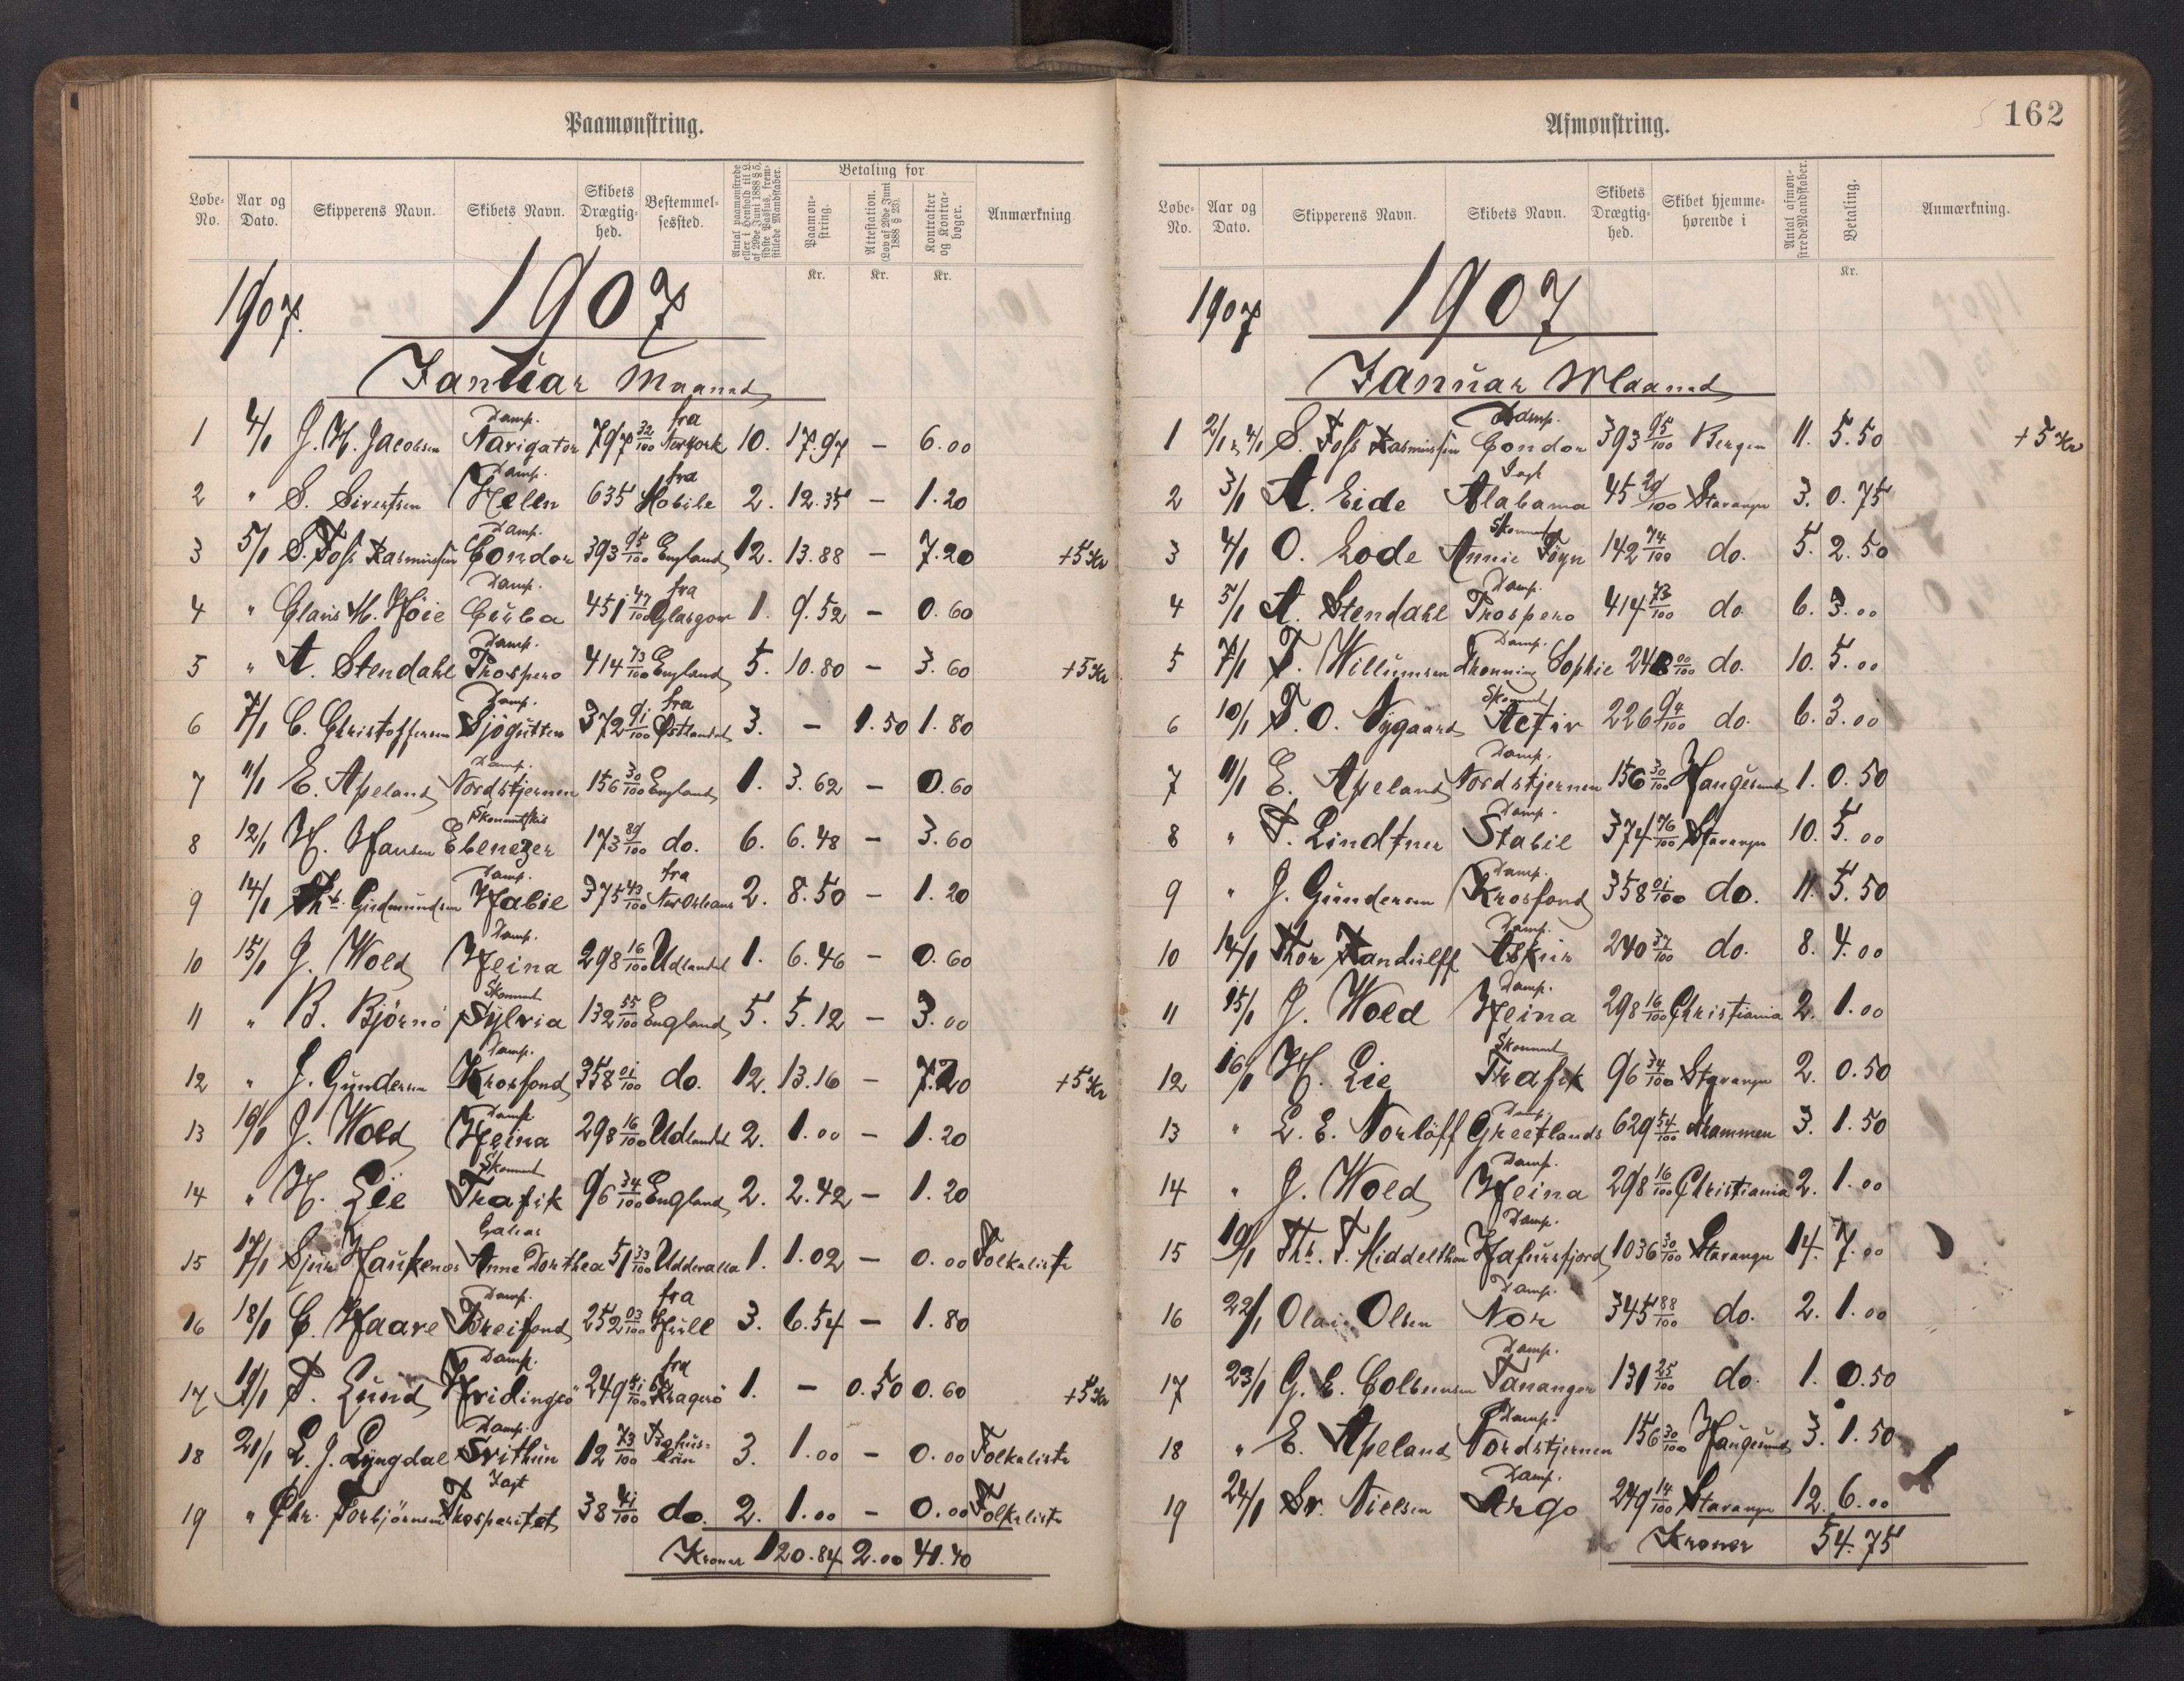 Paamønstring.
Løbe-No. Aar og Dato. Skipperens Navn. Skibets Navn. Skibets Drægtighed. Bestemmelsessted. Antal paamønstrede eller i Henhold til L. af 29de Juni 1888 § 5, sidste Passus, fremstillede Mandskaber. Betaling for Paamønstring. Attestation. (Lov af 29de Juni 1888 § 23). Kontrakter og Kontrabøger. Anmærkning
Kr. Kr. Kr.
1907. 1907
Januar Maaned
1 4/1 J. H. Jacobsen Damp. Navigator 797 32/100 fra Newyork 10. 17.97 – 6.00
2 " S. Sivertsen Damp. Helen 635 fra Mobile 2. 12.35 – 1.20
3 5/1 S. Foss Rasmussen Damp. Condor 393 95/100 England 12. 13.88 – 7.20 +5 Kr
4 " Claus M. Höie Damp. Cuba 451 47/100 fra Glasgow 1. 9.52 – 0.60
5 " A. Stendahl Damp. Prospero 414 73/100 England 5. 10.80 – 3.60 +5 Kr
6 7/1 C. Christoffersen Damp. Sjögutten 372 91/100 fra Østlandet 3. – 1.50 1.80
7 11/1 E. Apeland Damp. Nordstjernen 156 30/100 England 1. 3.62 – 0.60
8 12/1 H. Hansen Skonnertskib Ebenezer 173 89/100 do. 6. 6.48 – 3.60
9 14/1 Gudmundsen Damp. Habil 375 43/100 fra New Orleans 2. 8.50 – 1.20
10 15/1 J. Wold Damp. Heina 298 16/100 Udlandet 1. 6.46 – 0.60
11 " B. Björnö Skonnert Sylvia 132 55/100 England 5. 5.12 – 3.00
12 " J. Gundersen Damp. Krosfond 358 01/100 do. 12. 13.16 – 7.20 +5 Kr
13 16/1 J. Wold Damp Heina 298 16/100 Udlandet 2. 1.00 – 1.20
14 " H. Lie Skonnert Trafik 96 34/100 England 2. 2.42 – 1.20
15 17/1 Sjur Haukenæs Galeas Anne Dorthea 51 33/100 Uddevalla 1. 1.02 – 0.00 Folkeliste
16 18/1 C. Haave Damp. Breifond 252 03/100 fra Hull 3. 6.54 – 1.80
17 19/1 P. Lund Damp. Hvidingsö 249 fra Kragerö 1. – 0.50 0.60 +5 Kr
18 21/1 L. J. Lyngdal Damp. Svithun 12 73/100 Bohus-län 3. 1.00 – 0.00 Folkeliste
19 " Chr. Torbjörnsen Jagt Prosperitet 38 41/100 do. 2. 1.00 – 0.00 Folkeliste
Kroner 120.84 2.00 41.40
Afmønstring. 162
Løbe-No. Aar og Dato. Skipperens Navn. Skibets Navn. Skibets Drægtighed. Skibet hjemmehørende i Antal afmønstrede Mandskaber. Betaling. Anmærkning.
Kr.
1907 1907
Januar Maaned
1 2/1 & 4/1 S. Foss Rasmussen Damp. Condor 393 95/100 Bergen 11. 5.50 +5 Kr
2 3/1 A. Eide Jagt Alabama 45 29/100 Stavanger 3. 0.75
3 4/1 O. Lode Skonnert Annie Foyn 142 74/100 do. 5. 2.50
4 5/1 A. Stendahl Damp. Prospero 414 73/100 do 6. 3.00
5 7/1 T. Willumsen Damp. Dronning Sophie 248 00/100 do. 10. 5.00
6 10/1 T. O. Nygaard Skonnert Activ 226 94/100 do. 6. 3.00
7 11/1 E. Apeland Damp. Nordstjernen 156 30/100 Haugesund 1. 0.50
8 " T. Lindtner Damp. Stabil 374 76/100 Stavanger 10. 5.00
9 " J. Gundersen Damp. Krosfond 358 01/100 do. 11. 5.50
10 14/1 Thor Randulff Damp. Askur 240 37/100 do. 8. 4.00
11 15/1 J. Wold Damp. Heina 298 16/100 Christiania 2. 1.00
12 16/1 H. Lie Skonnert Trafik 96 34/100 Stavanger 2. 0.50
13 " L. E. Norlöff Damp. Greetlands 629 54/100 Drammen 3. 1.50
14 " J. Wold Damp. Heina 298 16/100 Christiania 2. 1.00
15 19/1 Th. T. Middelthon Damp. Hafursfjord 1036 30/100 Stavanger 14. 7.00
16 22/1 Olai Olsen Damp. Nor 345 88/100 do. 2. 1.00
17 23/1 G. E. Colbensen Damp. Tananger 131 25/100 do. 1. 0.50
18 " E. Apeland Damp. Nordstjernen 156 30/100 Haugesund 3. 1.50
19 24/1 Sv. Nielsen Damp. Argo 249 14/100 Stavanger 12. 6.00
Kroner 54.75